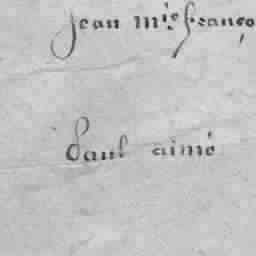 Jean mie franço
Paul aimé